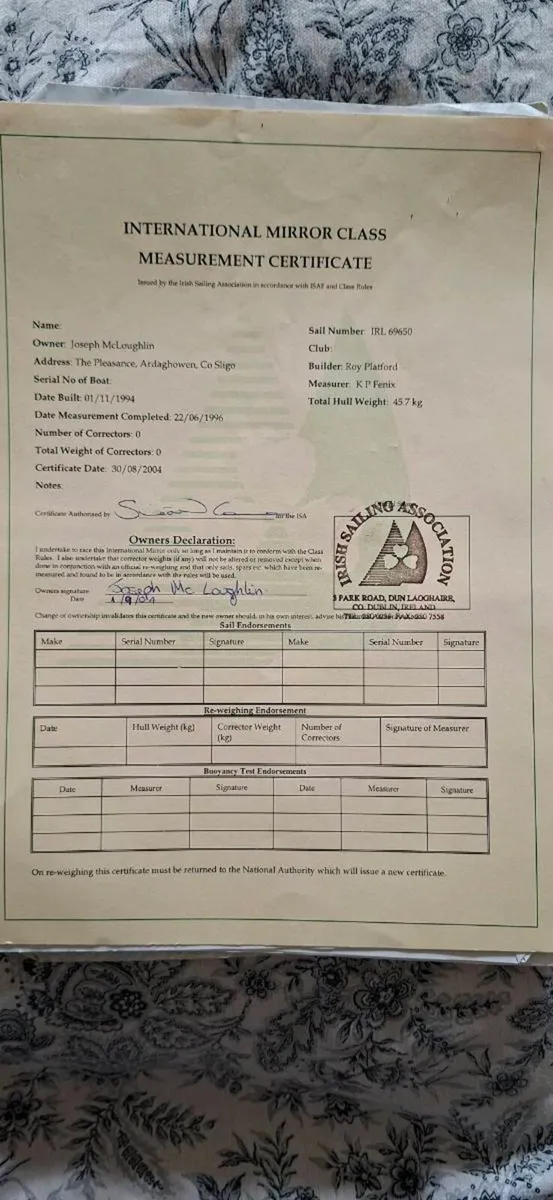 INTERNATIONAL MIRROR CLASS
MEASUREMENT CERTIFICATE
Issued by the Irish Sailing Association in accordance with ISAF and Class Rules
Name:
Owner: Joseph McLoughlin
Address: The Pleasance, Ardaghowen, Co Sligo
Serial No of Boat:
Date Built: 01/11/1994
Date Measurement Completed: 22/06/1996
Number of Correctors: 0
Total Weight of Correctors: 0
Certificate Date: 30/08/2004
Notes:
Sail Number: IRL 69650
Club:
Builder: Roy Platford
Measurer: K P Fenix
Total Hull Weight: 45.7 kg
Certificate Authorised by
for the ISA
Owners Declaration:
I undertake to race this International Mirror only so long as I maintain it to conform with the Class
Rules. I also undertake that corrector weights (if any) will not be altered or removed except when
done in conjunction with an official re-weighing and that only sails, spars etc which have been re-
measured and found to be in accordance with the rules will be used.
Owners signature Joseph Mc Loughlin
Date 1/9/04
IRISH SAILING ASSOCIATION
3 PARK ROAD, DUN LAOGHAIRE,
CO. DUBLIN, IRELAND
Change of ownership invalidates this certificate and the new owner should, in his own interest, advise
Sail Endorsements
Make Serial Number Signature Make Serial Number Signature
Re-weighing Endorsement
Date Hull Weight (kg) Corrector Weight (kg) Number of Correctors Signature of Measurer
Buoyancy Test Endorsements
Date Measurer Signature Date Measurer Signature
On re-weighing this certificate must be returned to the National Authority which will issue a new certificate.